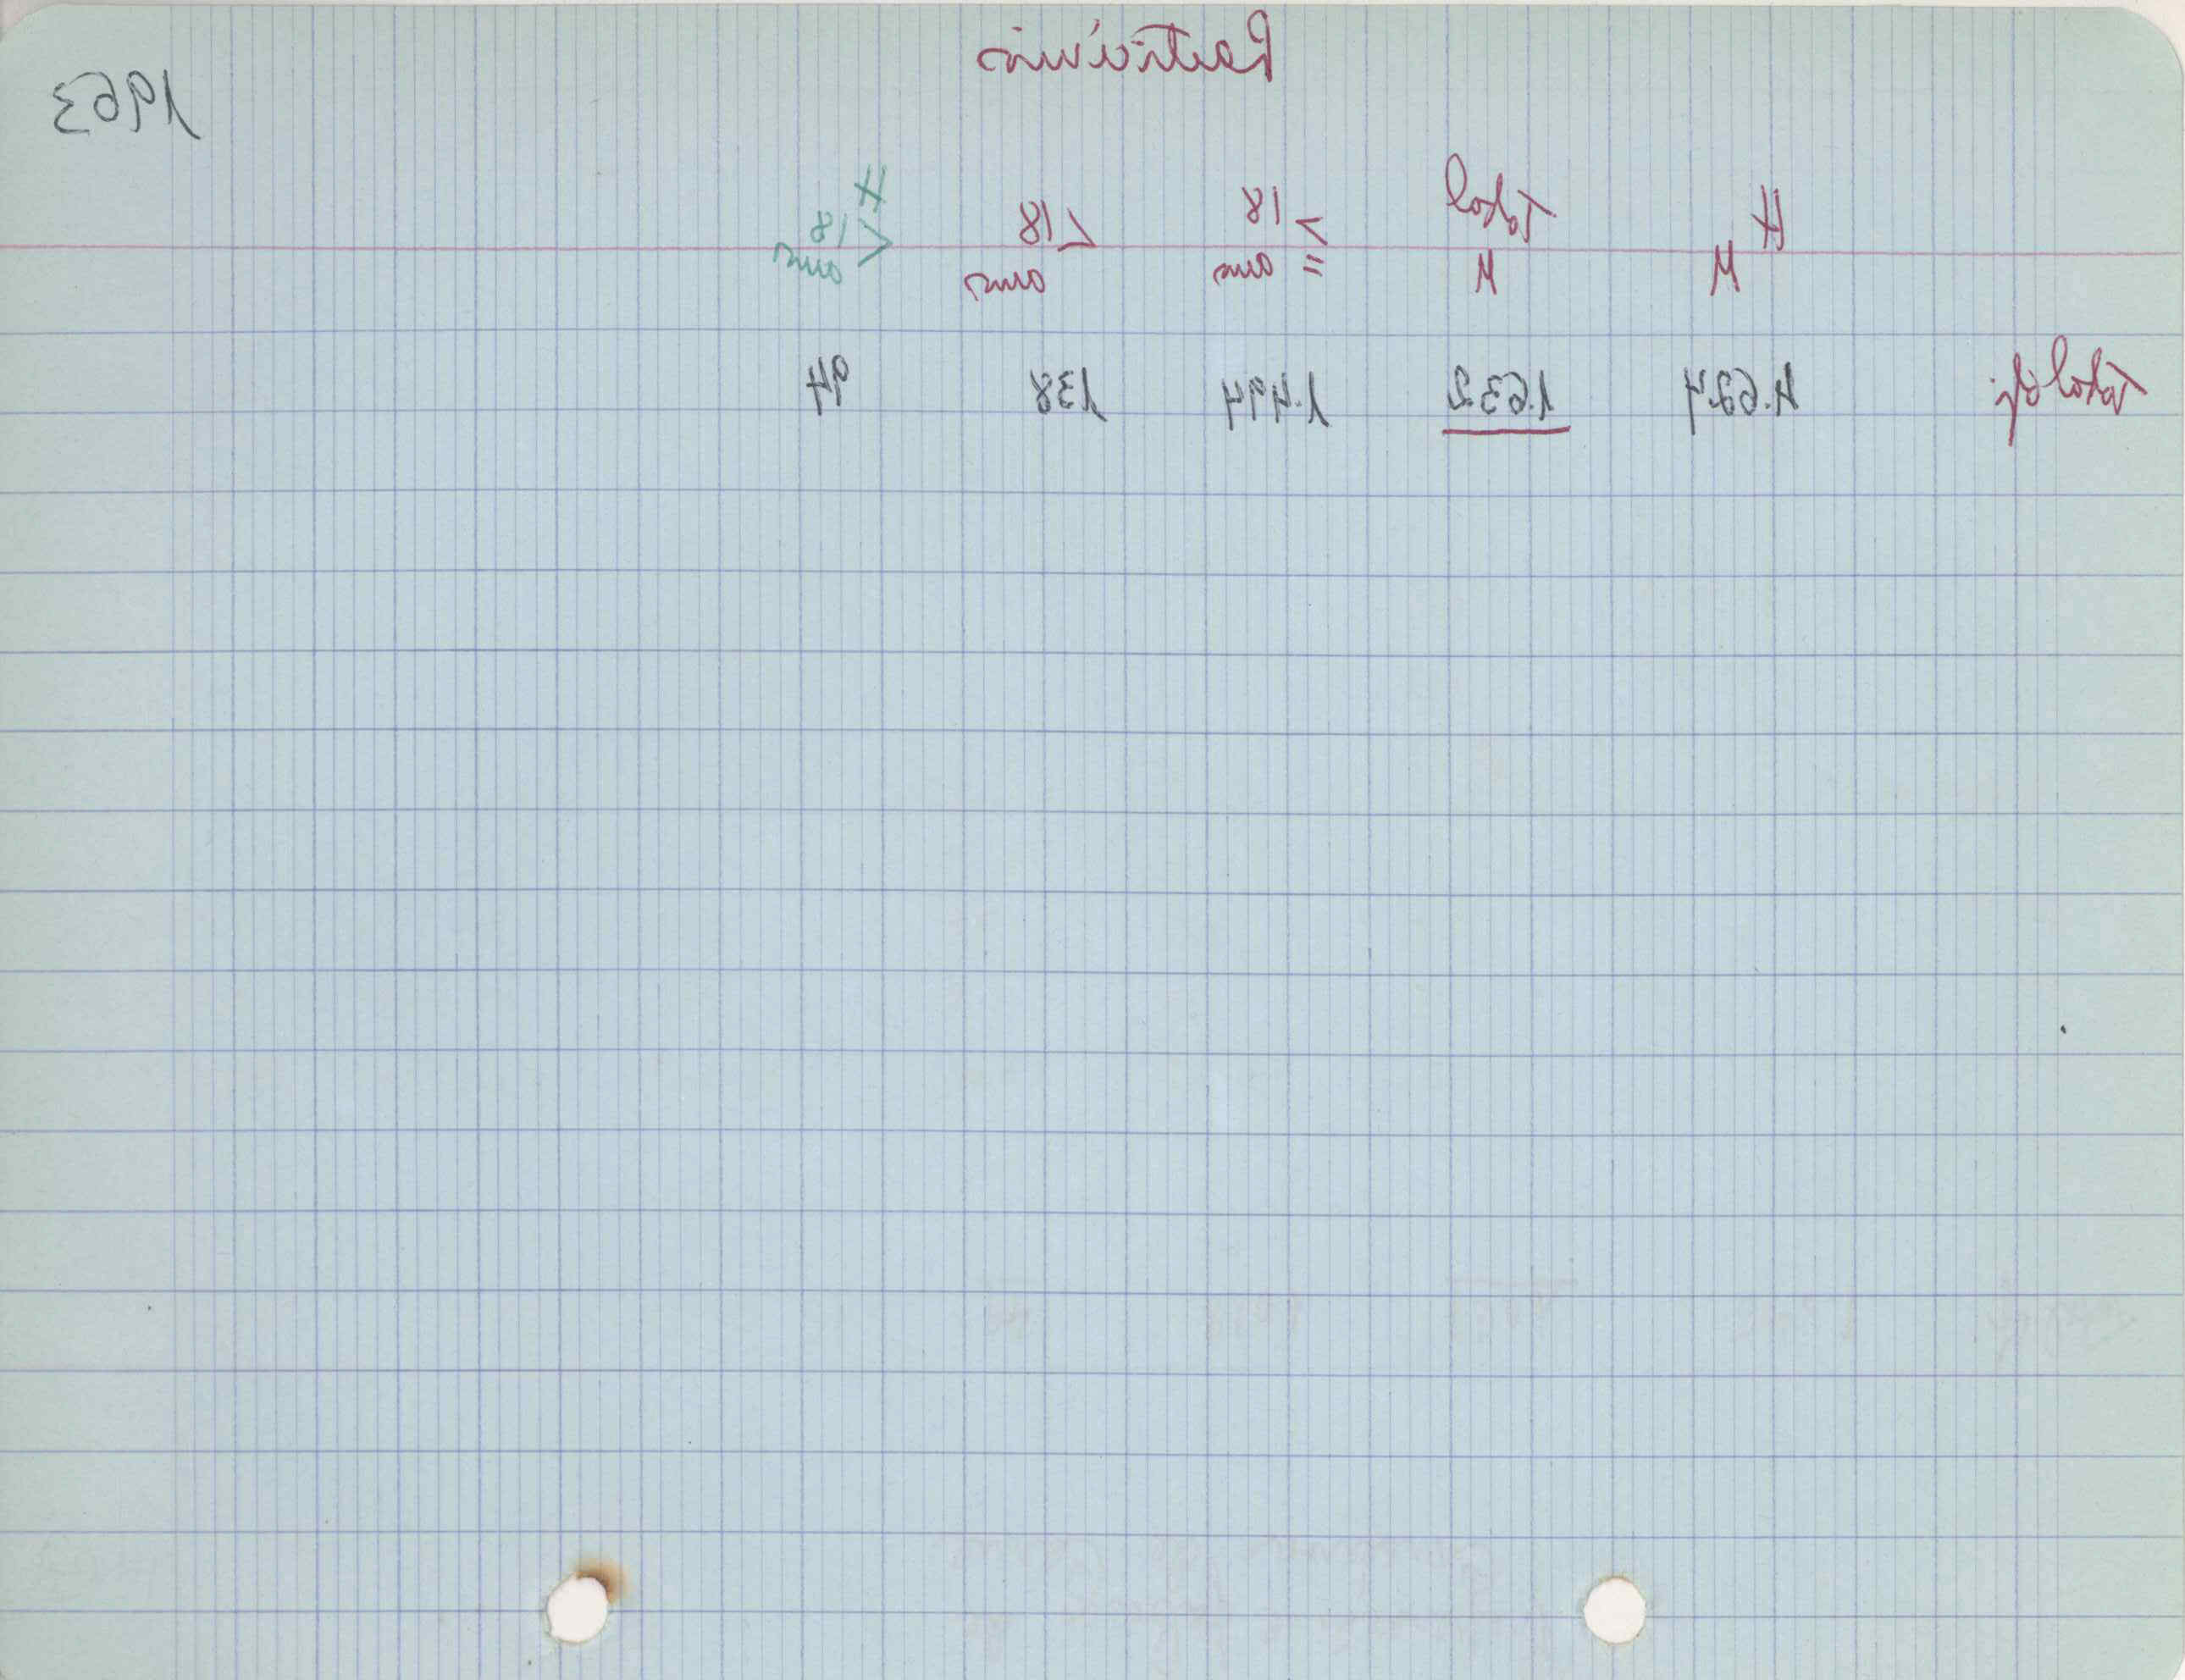 1963
H Total ≥ 18 < 18 H < 18
M M ans ans ans
Total 4.624 1.632 1.494 138 94